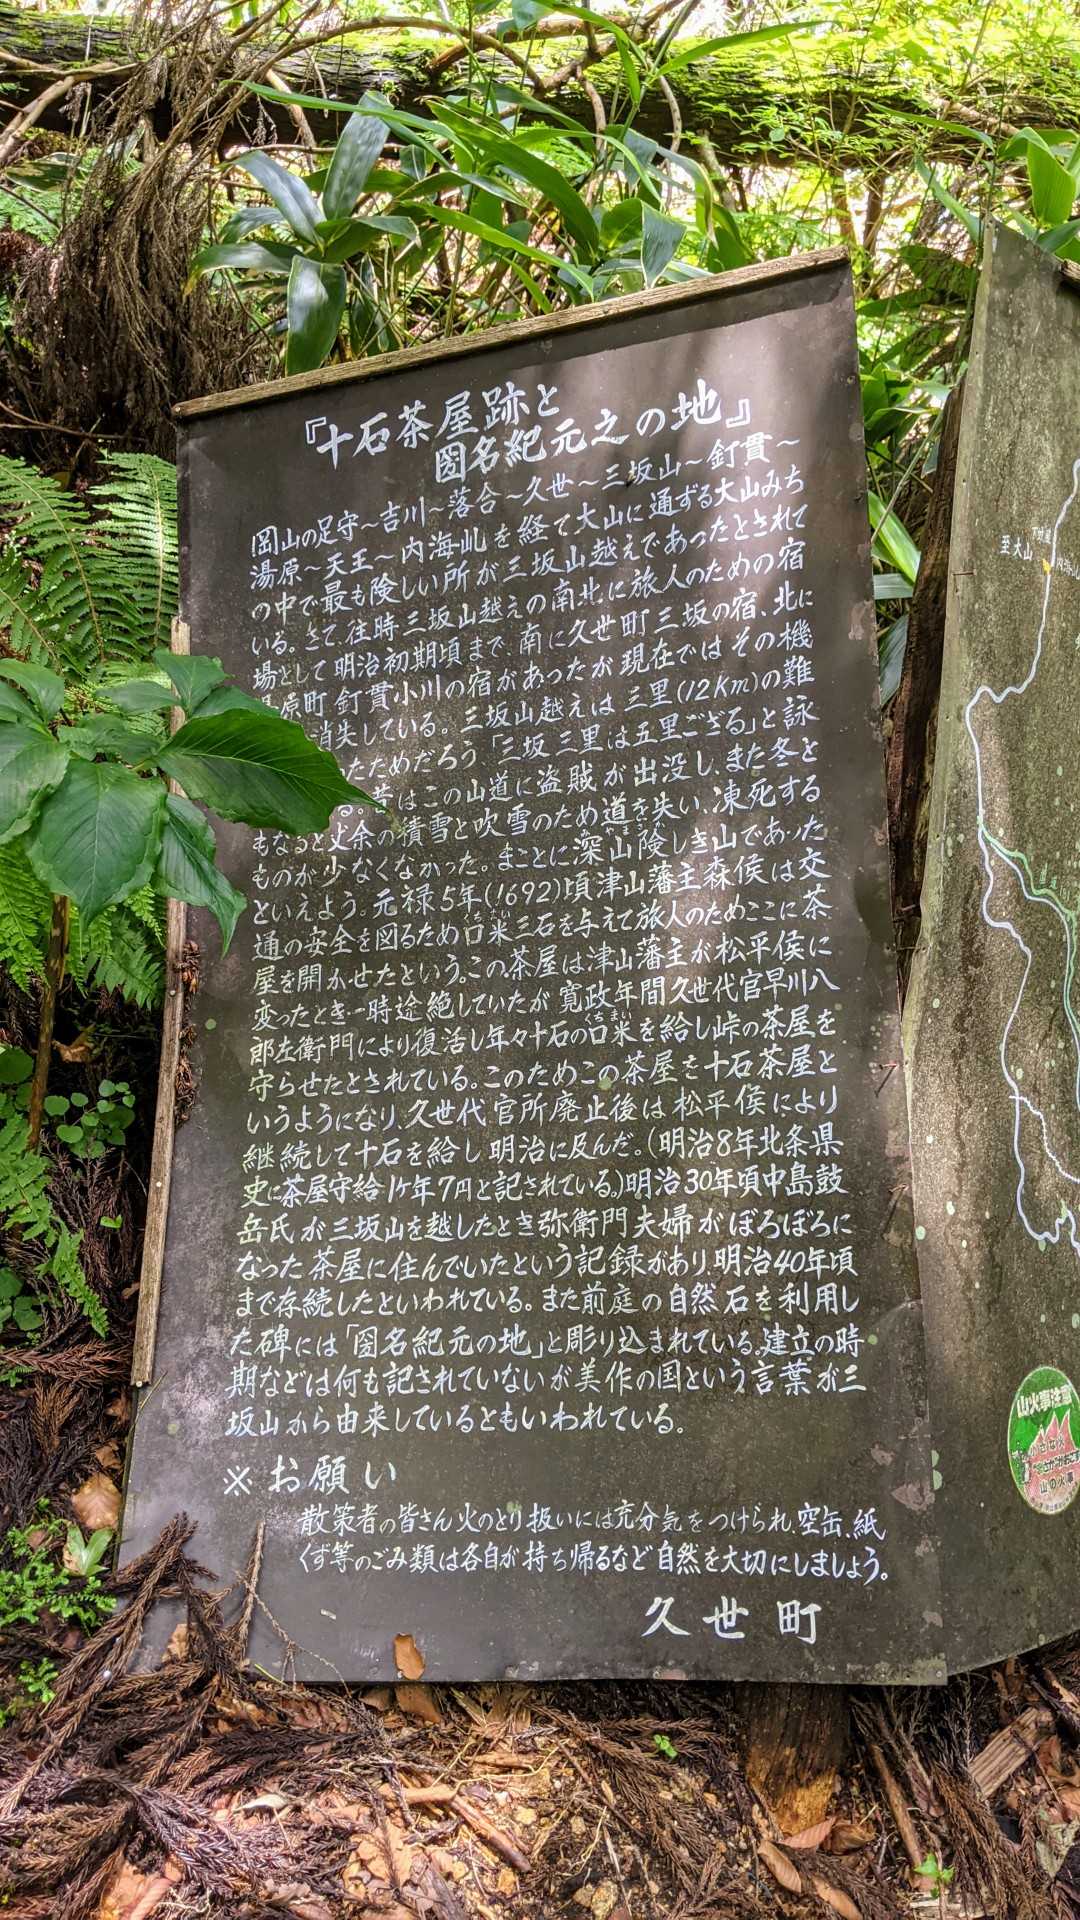 『十石茶屋跡と
圀名紀元之の地』
岡山の足守～吉川～落合～久世～三坂山～釘貫～
湯原～天王～内海乢を経て大山に通ずる大山みち
の中で最も険しい所が三坂山越えであったとされて
いる。さて、往時三坂山越えの南北に旅人のための宿
場として明治初期頃まで、南に久世町三坂の宿、北に
原町釘貫小川の宿があったが現在ではその機
消失している。三坂山越えは三里(12Km)の難
ためだろう「三坂三里は五里ござる」と詠
る。昔はこの山道に盗賊が出没し、また冬と
もなると丈余の積雪と吹雪のため道を失い、凍死する
ものが少なくなかった。まことに深山険しき山であった
といえよう。元禄5年(1692)頃津山藩主森侯は交
通の安全を図るため口米三石を与えて旅人のためここに茶
屋を開かせたという。この茶屋は津山藩主が松平侯に
変ったとき一時途絶していたが寛政年間久世代官早川八
郎左衛門により復活し年々十石の口米を給し峠の茶屋を
守らせたとされている。このためこの茶屋を十石茶屋と
いうようになり、久世代官所廃止後は松平侯により
継続して十石を給し明治に及んだ。(明治8年北条県
史に茶屋守給1ヶ年7円と記されている。)明治30年頃中島鼓
岳氏が三坂山を越したとき弥衛門夫婦がぼろぼろに
なった茶屋に住んでいたという記録があり、明治40年頃
まで存続したといわれている。また前庭の自然石を利用し
た碑には「圀名紀元の地」と彫り込まれている。建立の時
期などは何も記されていないが美作の国という言葉が三
坂山から由来しているともいわれている。
※お願い
散策者の皆さん火のとり扱いには充分気をつけられ、空缶、紙
くず等のごみ類は各自が持ち帰るなど自然を大切にしましょう。
久世町
至大山
山火事注意
小さな火
山の火事